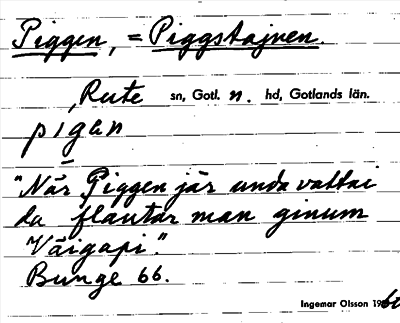 Piggen, = Piggstajnen.
Rute sn, Gotl. n. hd, Gotlands län.
pigan
"Når Piggen jär unda vattni
da flautar man ginum
Väigapi".
Bunge 66.
Ingemar Olsson 19